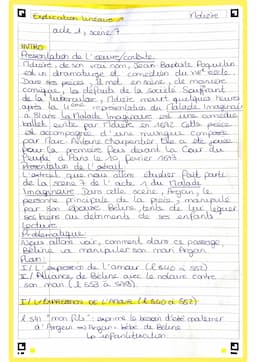 Explication linéaire 1 Molière
acte 1, scène 7
INTRO
Présentation de l'œuvre/contexte
Molière, de son vrai nom, Jean Baptiste Poquelin
est un dramaturge et comédien du XVIIe siècle.
Dans ses pièces, il met en scène, de manière
comique, les défauts de la société. Souffrant
de la tuberculose, Molière meurt quelques heures
après la 4ème représentation du Malade Imaginaire
à Paris. Le Malade Imaginaire est une comédie
ballet écrite par Molière en 1672. Cette pièce
est accompagnée d'une musique composée
par Marc Antoine Charpentier. Elle a été jouée
pour la première fois devant la Cour du
à Paris le 10 février 1673
Présentation de l'extrait
L'extrait que nous allons étudier fait partie
de la scène 7 de l'acte 1 du Malade
Imaginaire. Dans cette scène, Argan, le
personnage principale de la pièce, manipulé
par son épouse Béline, tente de lui léguer
ses biens au détriments de ses enfants
Lecture
Problématique
Nous allons voir, comment dans ce passage
Béline va manipuler son mari Argan
Plan:
I/ L'expression de l'amour (l 540 à 552)
II/ Alliance de Béline avec le notaire contre
son mari (l 553 à 578)
I/ L'EXPRESSION DE L'AMOUR (l 540 à 552)
l 541 "mon fils": exprime le besoin d'être materner
d'Argan => Argan: bébé de Béline
↳ infantilisation